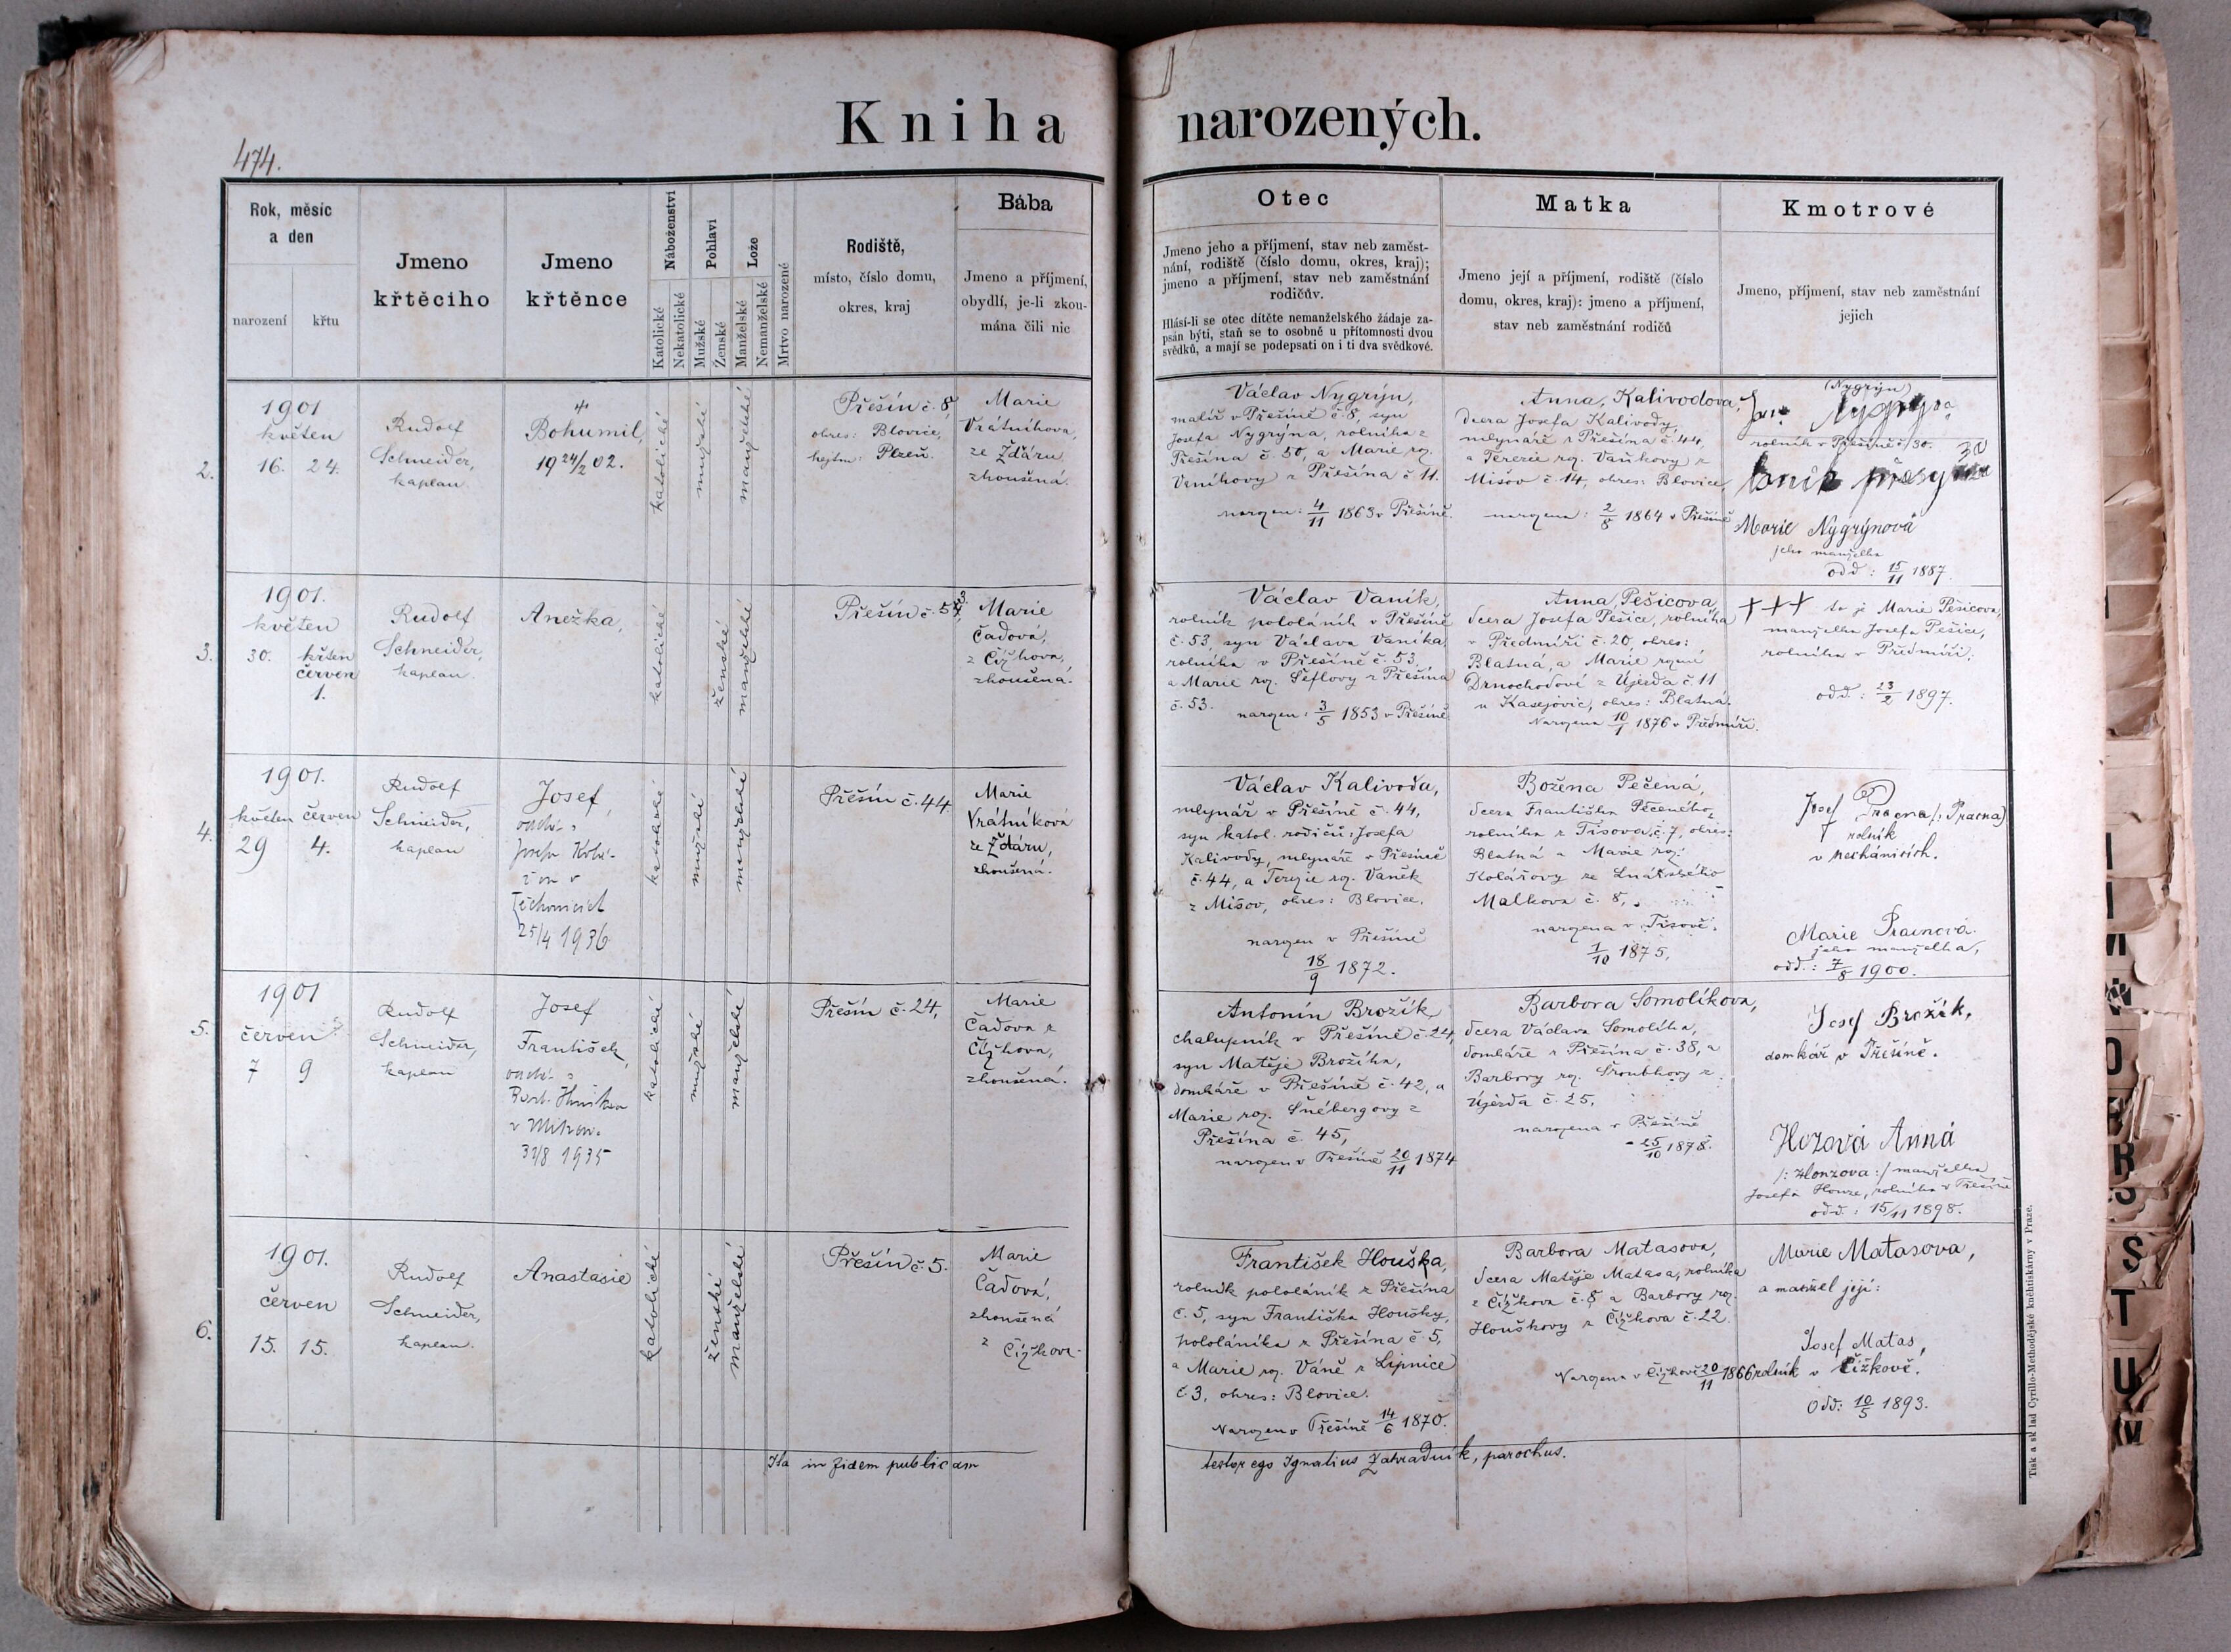 Kniha narozených.
474.
Rok, měsíc
a den
narození
křtu
Jmeno
křtěcího
Jmeno
křtěnce
Náboženství
Katolické
Nekatolické
Pohlaví
Mužské
Ženské
Lože
Manželské
Nemanželské
Mrtvo narozené
Rodiště,
místo, číslo domu,
okres, kraj
Bába
Jmeno a příjmení,
obydlí, je-li zkou-
mána čili nic
Otec
Jmeno jeho a příjmení, stav neb zaměst-
nání, rodiště (číslo domu, okres, kraj);
jmeno a příjmení, stav neb zaměstnání
rodičův.
Hlásí-li se otec dítěte nemanželského žádaje za-
psán býti, staň se to osobně u přítomnosti dvou
svědků, a mají se podepsati on i ti dva svědkové.
Matka
Jmeno její a příjmení, rodiště (číslo
domu, okres, kraj): jmeno a příjmení,
stav neb zaměstnání rodičů
Kmotrové
Jmeno, příjmení, stav neb zaměstnání
jejich
2.
1901
květen
16. 24.
Rudolf
Schneider,
kaplan.
Bohumil,
19 24/2 02.
katolické
mužské
manželské
Přešín č. 8,
okres: Blovice,
hejtm: Plzeň.
Marie
Vrátníkova,
ze Žďáru,
zkoušená.
Václav Nygrýn,
malíř v Přešíně č 8, syn
Josefa Nygrýna, rolníka z
Přešína č. 50, a Marie roz.
Vaníkovy z Přešína č 11.
narozen: 4/11 1863 v Přešíně.
Anna, Kalivodova,
dcera Josefa Kalivody,
mlynáře z Přešína č. 44,
a Terezie roz. Vaňkovy z
Mišov č. 14, okres: Blovice,
narozena: 2/8 1864 v Přešíně
(Nygrýn)
rolník v Přešíně č 30.
Marie Nygrýnová
jeho manželka
odd: 15/11 1887.
3.
1901.
květen
30. křten
červen
1.
Rudolf
Schneider,
kaplan.
Anežka,
katolické
ženské
manželské
Přešín č. 53,
Marie
Čadová,
z Čížkova,
zkoušená.
Václav Vaník,
rolník pololáník v Přešíně
č. 53, syn Václava Vaníka,
rolníka v Přešíně č. 53,
a Marie roz. Šeflovy z Přešína
č. 53.
narozen: 3/5 1853 v Přešíně
Anna, Pešicova,
dcera Josefa Pešice, rolníka
v Předmíři č. 20, okres:
Blatná, a Marie rozené
Drnochodové z Újezda č 11
u Kasejovic, okres: Blatná.
Narozena 10/1 1876 v Předmíři.
+++ to je Marie Pešicova,
manželka Josefa Pešice,
rolníka v Předmíři.
odd.: 23/2 1897.
4.
1901.
květen červen
29 4.
Rudolf
Schneider,
kaplan
Josef,
25/4 1936
katolické
mužské
manželské
Přešín č. 44.
Marie
Vrátníková
ze Žďáru,
zkoušená.
Václav Kalivoda,
mlynář v Přešíně č. 44,
syn katol. rodičů: Josefa
Kalivody, mlynáře v Přešíně
č. 44, a Terezie roz. Vaněk
z Mišov, okres: Blovice.
narozen v Přešíně
18/9 1872.
Božena Pečená,
dcera Františka Pečeného,
rolníka z Tisova, č. 7, okres:
Blatná a Marie roz.
Kolářovy ze Lnářského
Malkova č. 8,
narozena v Tisově.
1/10 1875,
Josef Pracna /: Pracna)
rolník
v Mechánicích.
Marie Pracnová
jeho manželka,
odd.: 7/8 1900.
5.
1901
červen
7 9
Rudolf
Schneider,
kaplan
Josef
František,
1935
katolické
mužské
manželské
Přešín č. 24,
Marie
Čadova z
Čížkova,
zkoušená.
Antonín Brožík,
chalupník v Přešíně č. 24,
syn Matěje Brožíka,
domkáře v Přešíně č. 42, a
Marie roz. Šnébergovy z
Přešína č. 45,
narozen v Přešíně 20/11 1874
Barbora Somolíkova,
dcera Václava Somolíka,
domkáře z Přešína č. 38, a
Barbory roz. Šroubkovy z
Újezda č. 25,
narozena v Přešíně
25/10 1878.
Josef Brožík,
domkář v Přešíně.
Hozová Anná
/: Honzova :/ manželka
Josefa Honze, rolníka v Přešíně
odd.: 15/11 1898.
6.
1901.
červen
15. 15.
Rudolf
Schneider,
kaplan.
Anastasie
katolické
ženské
manželské
Přešín č 5.
Marie
Čadová,
zkoušená
z Čížkova
František Houška,
rolník pololáník z Přešína
č. 5, syn Františka Houšky,
pololáníka z Přešína č. 5,
a Marie roz. Váně z Lipnice
č. 3, okres: Blovice.
Narozen v Přešíně 14/6 1870.
Barbora Matasova,
dcera Matěje Matasa, rolníka
z Čížkova č. 8 a Barbory roz.
Houškovy z Čížkova č. 22.
Narozena v Čížkově 20/11 1866
Marie Matasova,
a manžel její:
Josef Matas,
rolník v Čížkově.
Odd: 10/5 1893.
Ita in fidem publicam
testor ego Ignatius Zahradník, parochus.
Tisk a sklad Cyrillo-Methodějské knihtiskárny v Praze.